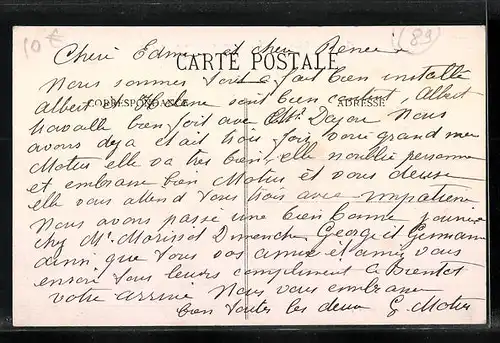 10 €
(89)
Cheri Edmee et cher Renee
CARTE POSTALE
Nous sommes tout a fait bien installe
CORRESPONDANCE
ADRESSE
Albert Helene sont bien contant, Albert
travaille bien soit avec Mr. Dajou Nous
avons deja etait trois fois voire grand mere
Motus elle va tres bien, elle n'oublie personne
et embrasse bien Motus et vous deuse
elle vous attend vous trois avec impatience
Nous avons passé une bien bonne journée
chez Mr. Morisset Dimanche, George et Germaine
ainsi que tous vos amie et amis vous
envoie tous leurs compliment a Bientot
votre arrivé Nous vous embrasse
bien toutes les deux G. Motus